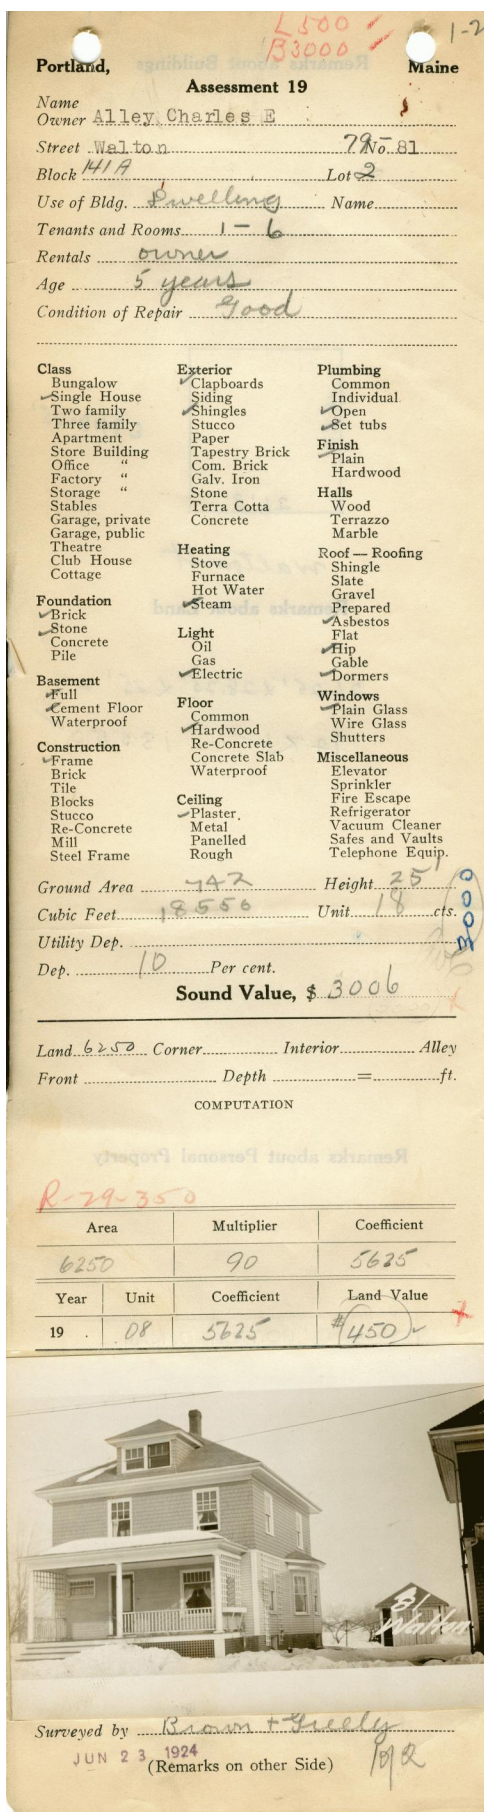 L 500
B 3000
1-2
Portland, Maine
Assessment 19
Name
Owner Alley Charles E
Street Walton 79- No. 81
Block 141A Lot 2
Use of Bldg. Dwelling Name
Tenants and Rooms 1 - 6
Rentals owner
Age 5 years
Condition of Repair Good
Class
Bungalow
Single House
Two family
Three family
Apartment
Store Building
Office "
Factory "
Storage "
Stables
Garage, private
Garage, public
Theatre
Club House
Cottage
Foundation
Brick
Stone
Concrete
Pile
Basement
Full
Cement Floor
Waterproof
Construction
Frame
Brick
Tile
Blocks
Stucco
Re-Concrete
Mill
Steel Frame
Exterior
Clapboards
Siding
Shingles
Stucco
Paper
Tapestry Brick
Com. Brick
Galv. Iron
Stone
Terra Cotta
Concrete
Heating
Stove
Furnace
Hot Water
Steam
Light
Oil
Gas
Electric
Floor
Common
Hardwood
Re-Concrete
Concrete Slab
Waterproof
Ceiling
Plaster
Metal
Panelled
Rough
Plumbing
Common
Individual
Open
Set tubs
Finish
Plain
Hardwood
Halls
Wood
Terrazzo
Marble
Roof — Roofing
Shingle
Slate
Gravel
Prepared
Asbestos
Flat
Hip
Gable
Dormers
Windows
Plain Glass
Wire Glass
Shutters
Miscellaneous
Elevator
Sprinkler
Fire Escape
Refrigerator
Vacuum Cleaner
Safes and Vaults
Telephone Equip.
Ground Area 742 Height 25'
Cubic Feet 18550 Unit 18 cts.
3000
Utility Dep.
Dep. 10 Per cent.
Sound Value, $ 3006
Land 6250 Corner Interior Alley
Front Depth = ft.
COMPUTATION
Remarks about Personal Property
R-29-350
Area Multiplier Coefficient
6250 90 5625
Year Unit Coefficient Land Value
19 . 08 5625 $450
81
Walton
Surveyed by Brown + Greely
JUN 23 1924
(Remarks on other Side)